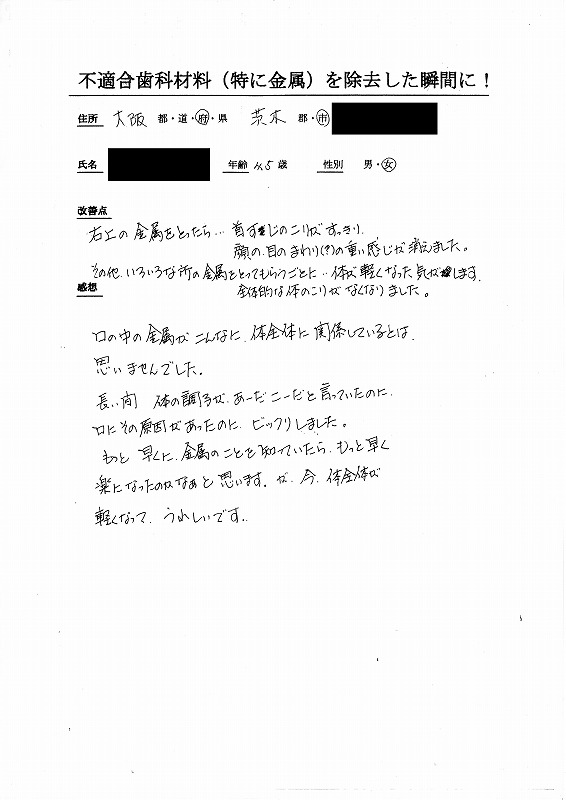 不適合歯科材料（特に金属）を除去した瞬間に！
住所 大阪 都・道・府・県 茨木 郡・市
氏名 年齢 45 歳 性別 男・女
改善点
右上の金属をとったら… 首すじのこりがすっきり、
顔の、目のまわり(?)の重い感じが消えました。
その他、いろいろな所の金属をとってもらうごとに… 体が軽くなった気がします。
全体的な体のこりがなくなりました。
感想
口の中の金属が こんなに、体全体に関係しているとは、
思いませんでした。
長い間 体の調子が、あーだこーだと言っていたのに、
口にその原因があったのに、ビックリしました。
もっと 早くに、金属のことを知っていたら、もっと早く
楽になったのかなぁと思います。が、今、体全体が
軽くなって、うれしいです。